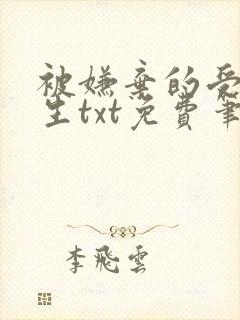 被嫌弃的受
生txt免費筆
李飛雲